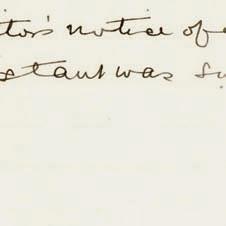 itor's notice of
istant was